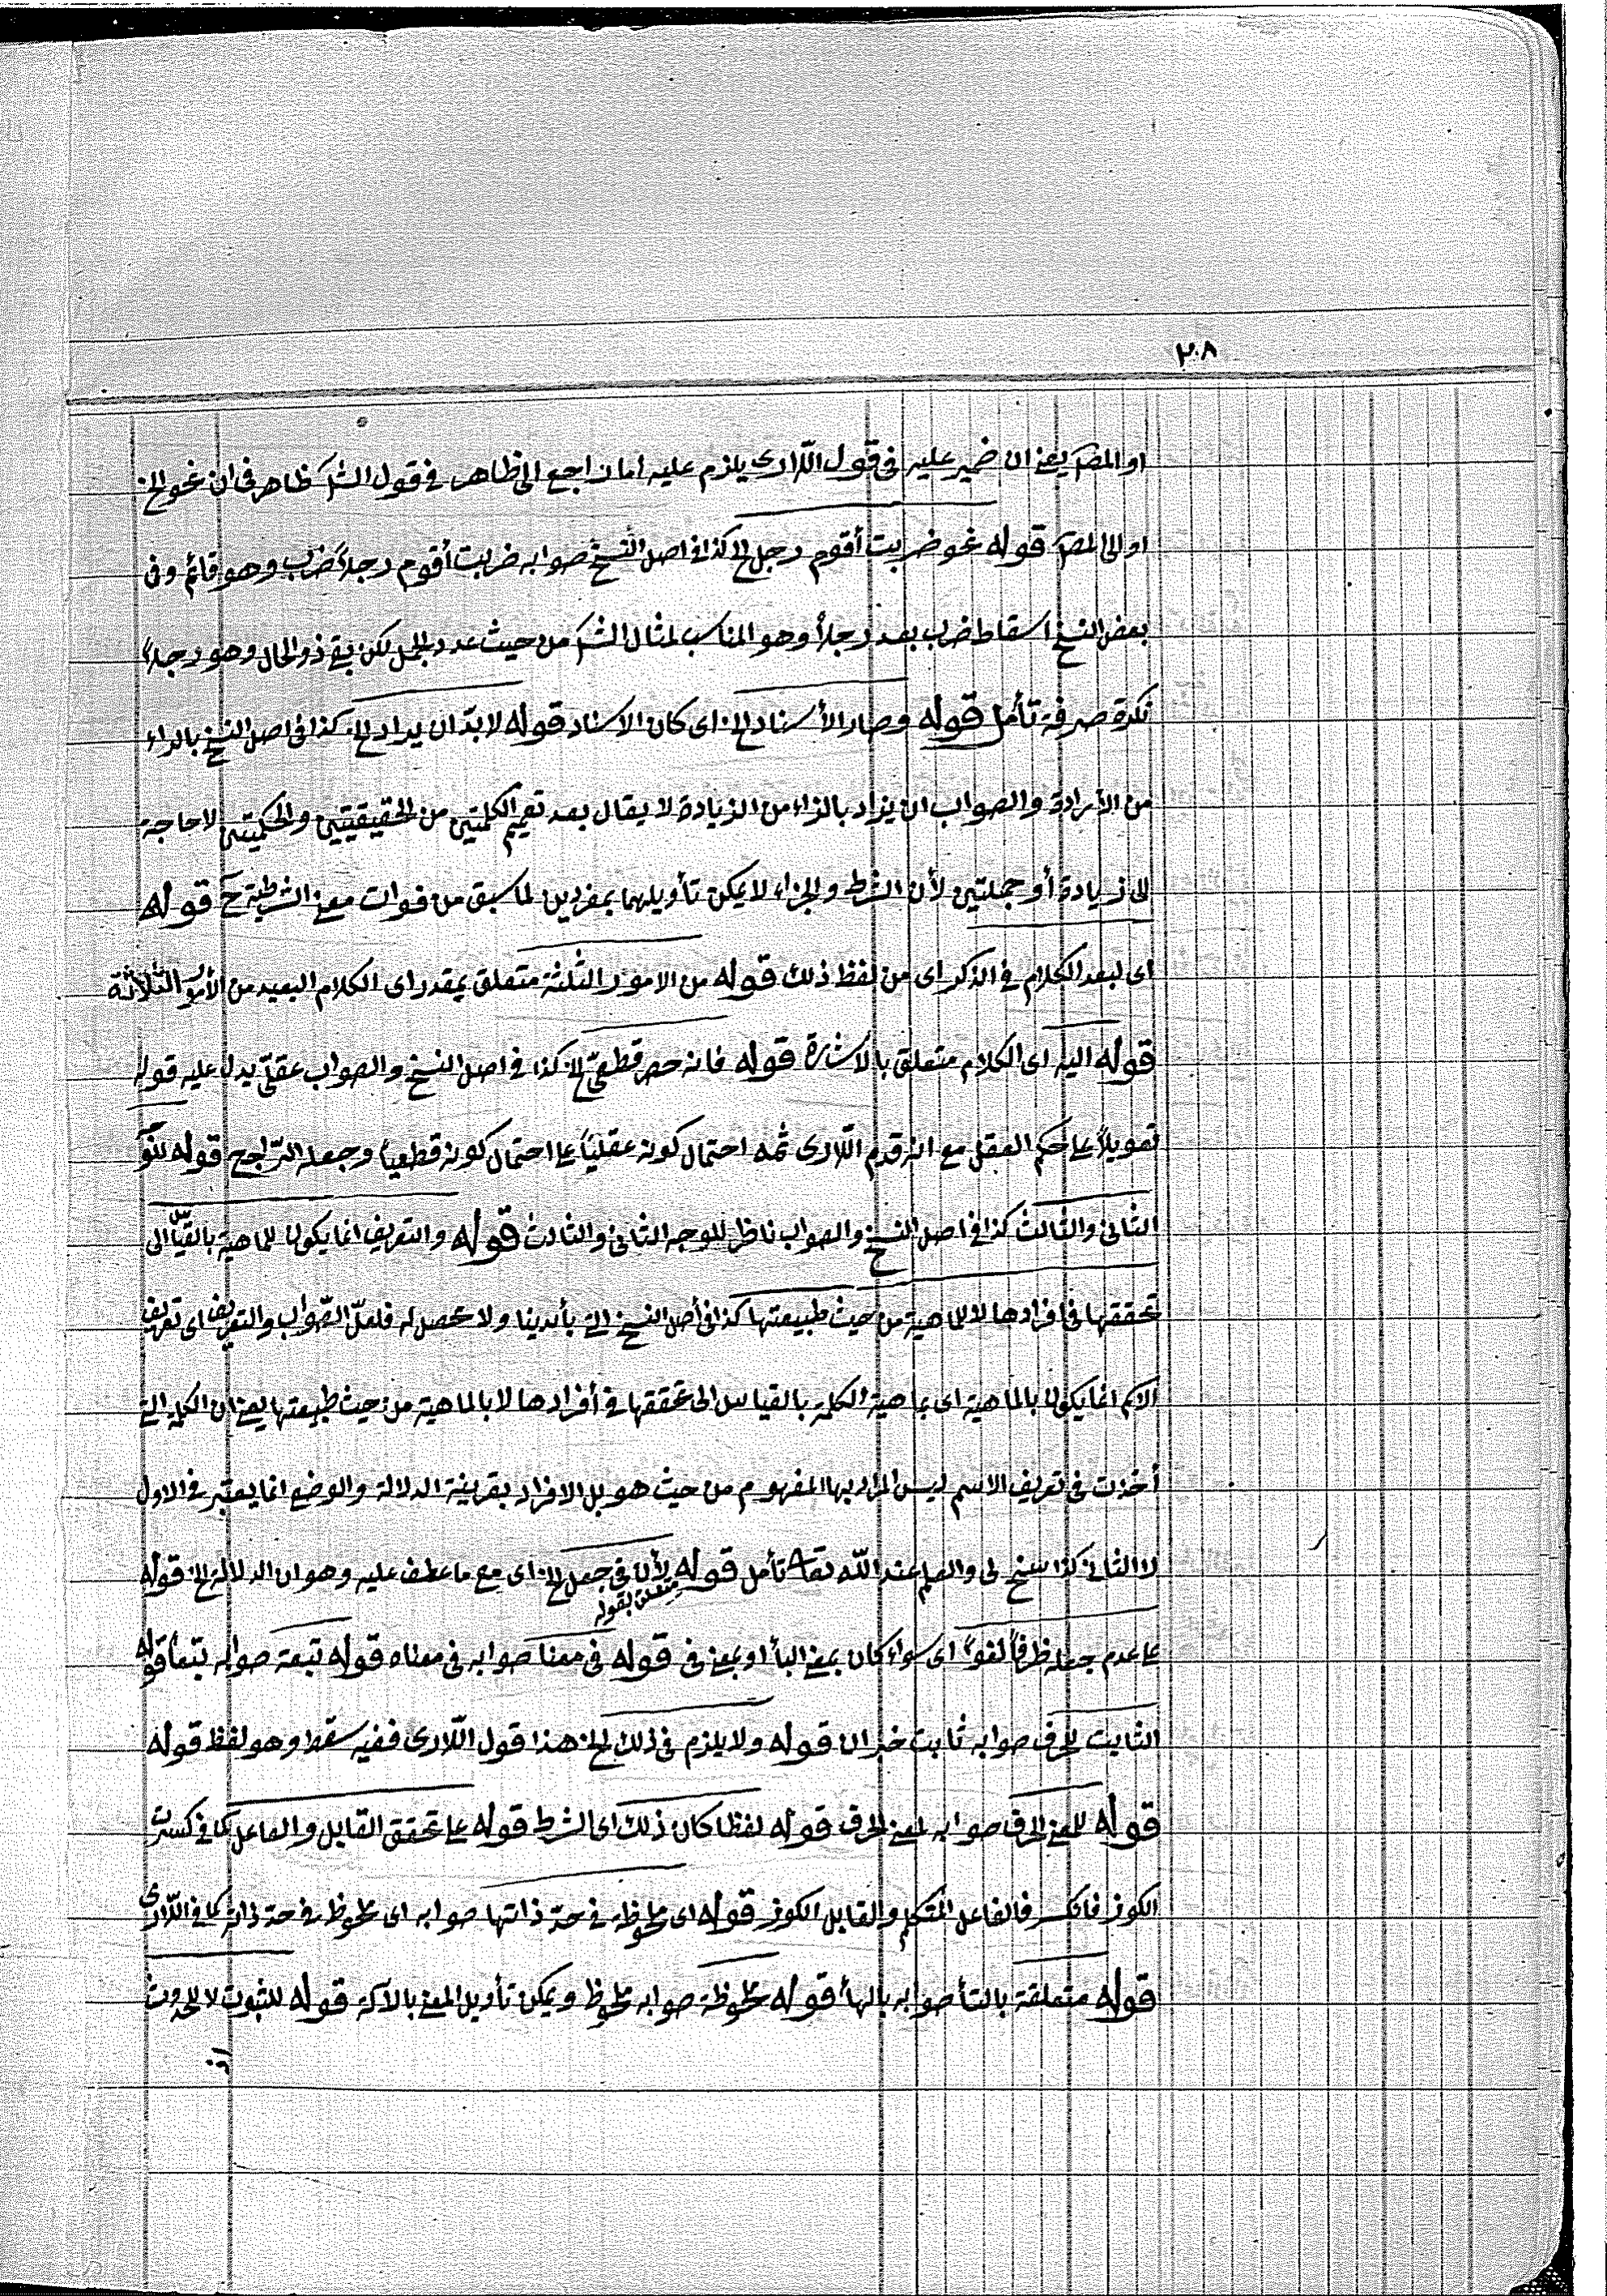 ٢٠٨
او المصـ يعني ان ضمير عليه في قول اللّارى يلزم عليه اما راجع الى ظاهر في قول الشـ ظاهر في ان نحو الخ
او الى المصـ قوله نحو ضربت أقوم رجل الخ كذا في اصل النسخ صوابه ضربت أقوم رجلاً ضرب وهو قائم وفي
بعض النسخ اسقاط ضرب بعد رجلاً وهو المناسب لمثال الشـ من حيث عدد الجمل لكن بقي ذو الحال وهو رجلاً
نكرة صرفة تأمل قوله وصار الأسناد الخ اى كان الاسناد قوله لا بدّ ان يراد الخ كذا في اصل النسخ بالراء
من الأرادة والصواب ان يزاد بالزاء من الزيادة لا يقال بعد تعميم الكلمتين من الحقيقيتين والحكميتين لا حاجة
الى زيادة أو جملتين لأن الشرط والجزاء لا يمكن تأويلهما بمفردين لما سبق من فوات معنى الشرطية ح قوله
اى لبعد الكلام في الذكر اى من لفظ ذلك قوله من الامور الثلثة متعلق بمقدر اى الكلام البعيد من الأمور الثلاثة
قوله اليه اى الكلام متعلق بالأشارة قوله فانه حصر قطعيّ الخ كذا في اصل النسخ والصواب عقليّ يدل عليه قوله
تعويلاً على حكم العقل مع انه قدم اللّارى ثمه احتمال كونه عقلياً على احتمال كونه قطعياً وجعله الرّاجح قوله للنو
الثاني والثالث كذا في اصل النسخ والصواب ناظر للوجه الثاني والثالث قوله والتعريف انما يكون للماهية بالقياس الى
تحققها في افرادها لا للماهية من حيث طبيعتها كذا في أصل النسخ التي بأيدينا ولا محصل له فلعلّ الصّواب والتعريف اى تعريف
الاسم انما يكون بالماهية اى بماهية الكلمة بالقياس الى تحققها في أفرادها لا بالماهية من حيث طبيعتها يعني ان الكلمة التي
أخذت في تعريف الاسم ليس المراد بها المفهوم من حيث هو بل الافراد بقرينة الدلالة والوضع انما يعتبر في الاول
لا الثاني كذا سنح لي والعلم عند اللّه تعا تأمل قوله لأن في جعل الخ اى مع ما عطف عليه وهو ان الدلالة الخ قوله
متعلق بقوله
على عدم جعله ظرفاً لغواً اى سواء كان بمعنى البأ او بمعنى في قوله في معنا صوابه في معناه قوله تبعة صوابه تبعاً قوله
الثابت للحرف صوابه ثابت خبر ان قوله ولا يلزم في ذلك الخ هذا قول اللّارى ففيه سقط وهو لفظ قوله
قوله للمعنى الحرف صوابه لمعنى الحرف قوله لفظا كان ذلك اى الشرط قوله على تحقق القابل والفاعل كما في كسرت
الكوز فانكسر فالفاعل المتكلم والقابل الكوز قوله اى ملحوظة في حدّ ذاتها صوابه اى ملحوظ في حدّ ذاته كما في اللّارى
قوله متعلقة بالتأ صوابه بالهأ قوله ملحوظة صوابه ملحوظ ويمكن تأويل المعنى بالآلة قوله للثبوت لا للحدوث